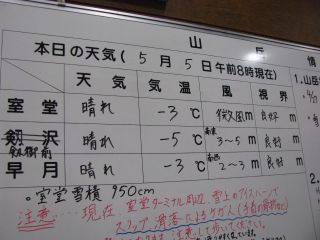 山岳情
本日の天気(5月5日午前8時現在)
天気 気温 風 視界
室堂 晴れ -3℃ 微風m 良好m
剱沢
剱御前 晴れ -5℃ 南東 3~5m 良好m
早月 晴れ -3℃ 南西 2~3m 良好m
・室堂雪積 950cm
注意… 現在、室堂ターミナル周辺、雪上のアイスバーンで
スリップ、滑落によるケガ人
1.山岳
2.